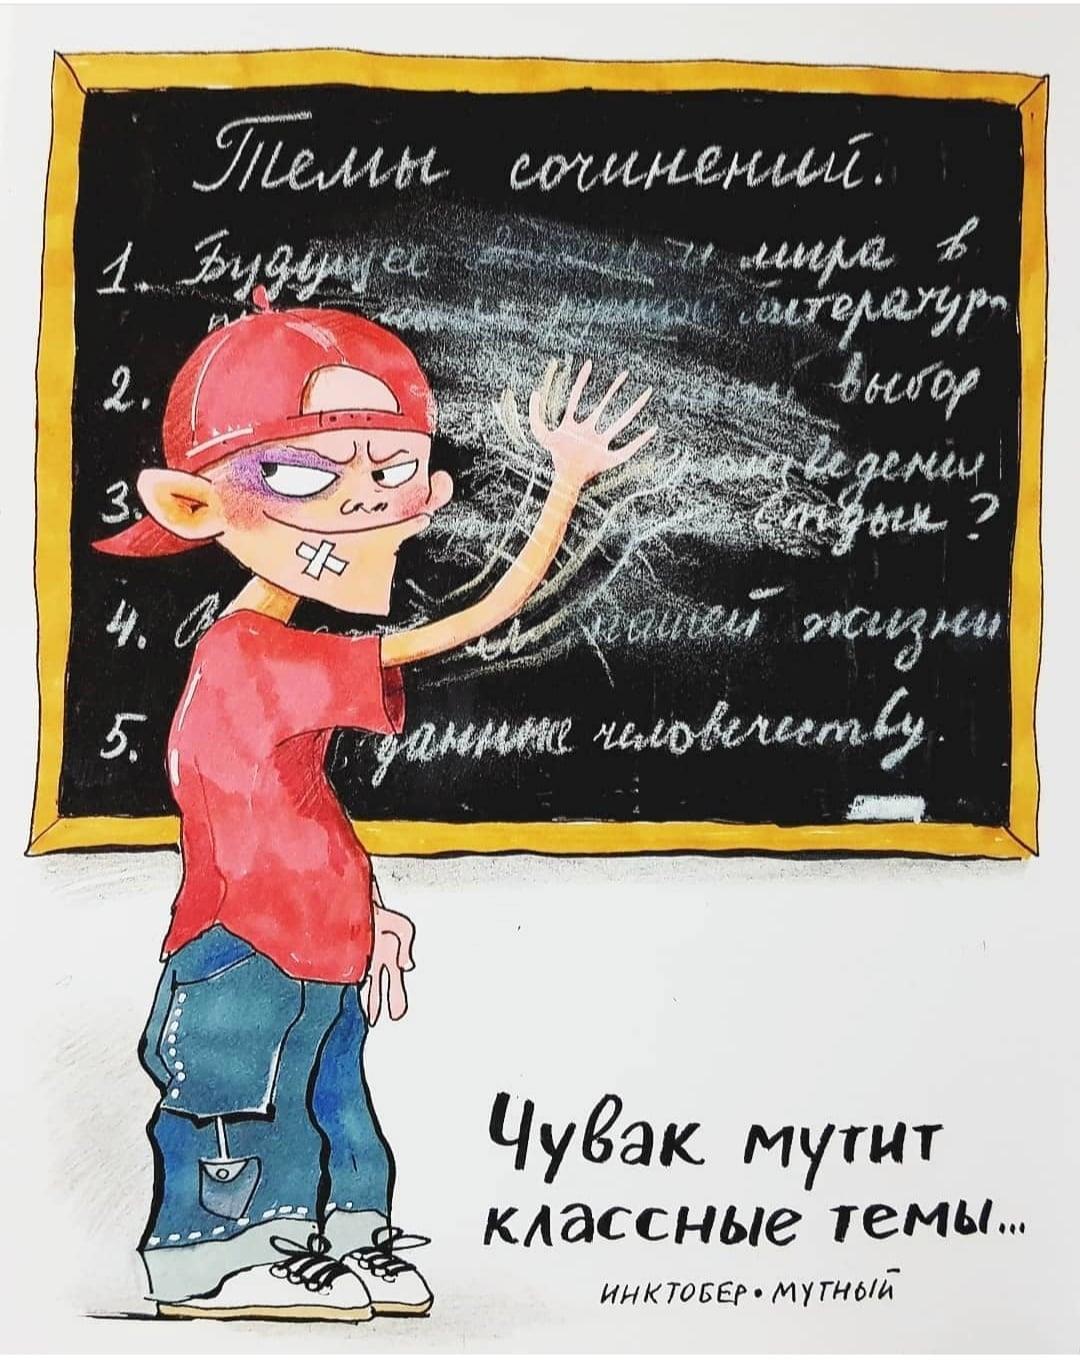 Темы сочинений.
1. Будущее и мира в
литератур
2. выбор
3.
отдых?
4. нашей жизни
5. данные человечеству.
Чувак мутит
классные темы...
ИНКТОБЕР • МУТНЫЙ